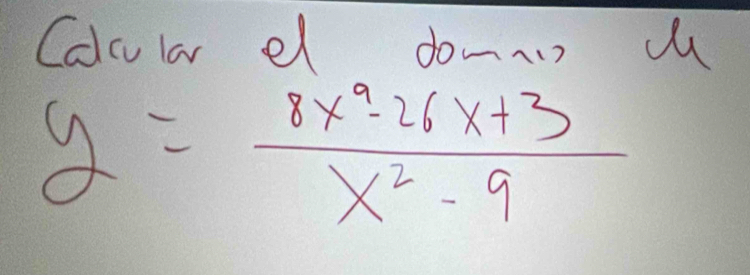 Calcular el dominio de
y = \frac{8x^9 - 26x + 3}{x^2 - 9}